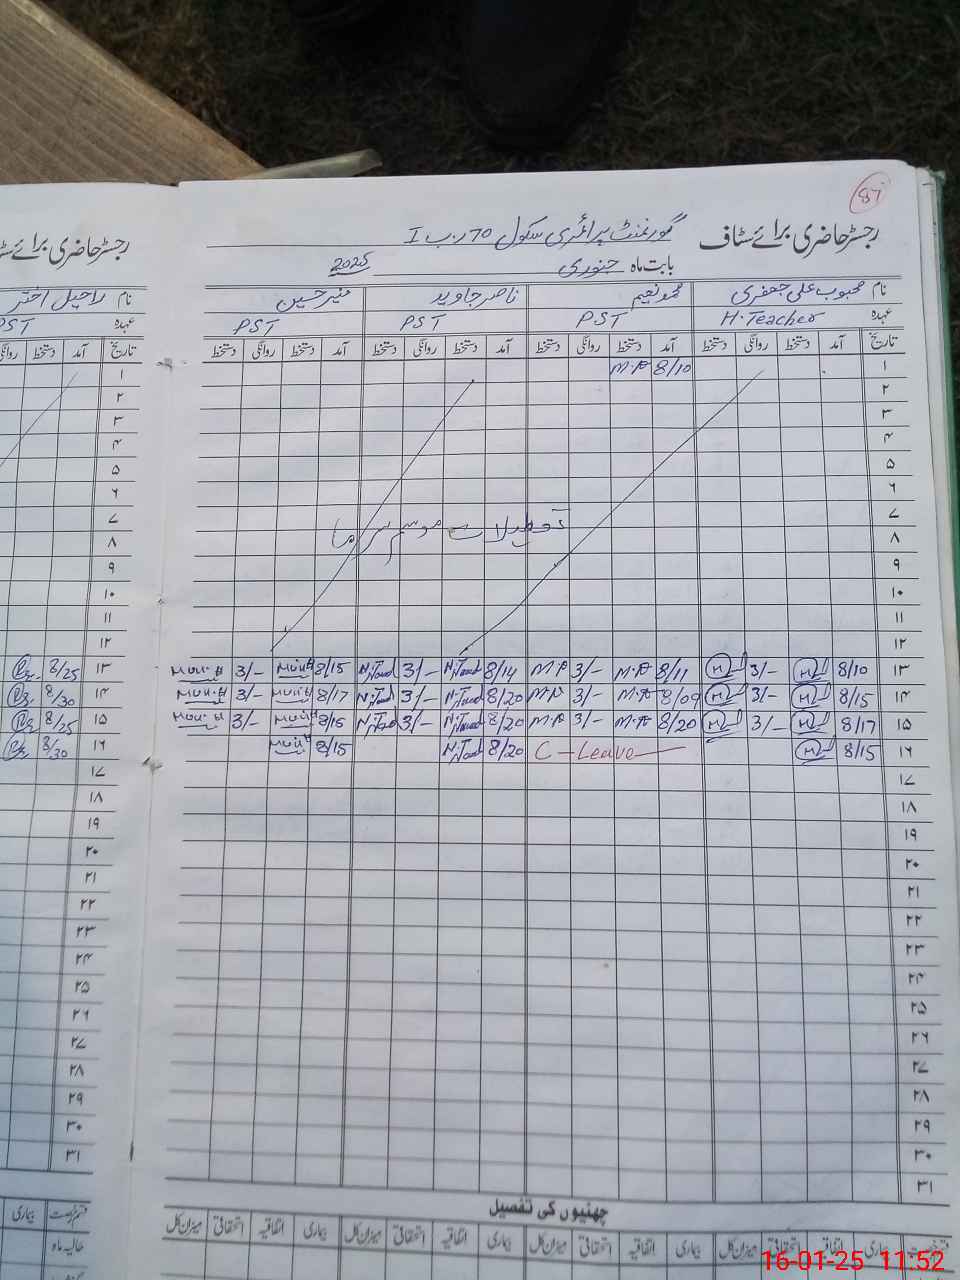 87
رجسٹر حاضری برائے سٹاف گورنمنٹ پرائمری سکول 70 ر۔ب I
بابت ماہ جنوری 2025
نام محبوب علی جعفری محمد نعیم ناصر جاوید منیر حسین
عہدہ H.Teacher PST PST PST
تاریخ آمد دستخط روانگی دستخط آمد دستخط روانگی دستخط آمد دستخط روانگی دستخط آمد دستخط روانگی دستخط
۱ 8/10 M.A
۲
۳
۴
۵
۶
۷
تعطیلات موسم سرما
۸
۹
۱۰
۱۱
۱۲
۱۳ 8/10 3/- 8/11 M.A 3/- M.A 8/14 3/- 8/15 3/-
۱۴ 8/15 3/- 8/09 M.A 3/- M.A 8/20 3/- 8/17 3/-
۱۵ 8/17 3/- 8/20 M.A 3/- M.A 8/20 3/- 8/16 3/-
۱۶ 8/15 C-Leave 8/20 8/15
۱۷
۱۸
۱۹
۲۰
۲۱
۲۲
۲۳
۲۴
۲۵
۲۶
۲۷
۲۸
۲۹
۳۰
۳۱
چھٹیوں کی تفصیل
بیماری اتفاقیہ استحقاقی میزان کل بیماری اتفاقیہ استحقاقی میزان کل بیماری اتفاقیہ استحقاقی میزان کل بیماری اتفاقیہ استحقاقی میزان کل
رجسٹر حاضری برائے
نام راحیل اختر
عہدہ PST
تاریخ آمد دستخط روانگی
۱
۲
۳
۴
۵
۶
۷
۸
۹
۱۰
۱۱
۱۲
۱۳ 8/25
۱۴ 8/30
۱۵ 8/25
۱۶ 8/30
۱۷
۱۸
۱۹
۲۰
۲۱
۲۲
۲۳
۲۴
۲۵
۲۶
۲۷
۲۸
۲۹
۳۰
۳۱
قسم رخصت بیماری
حالیہ ماہ
16-01-25 11:52